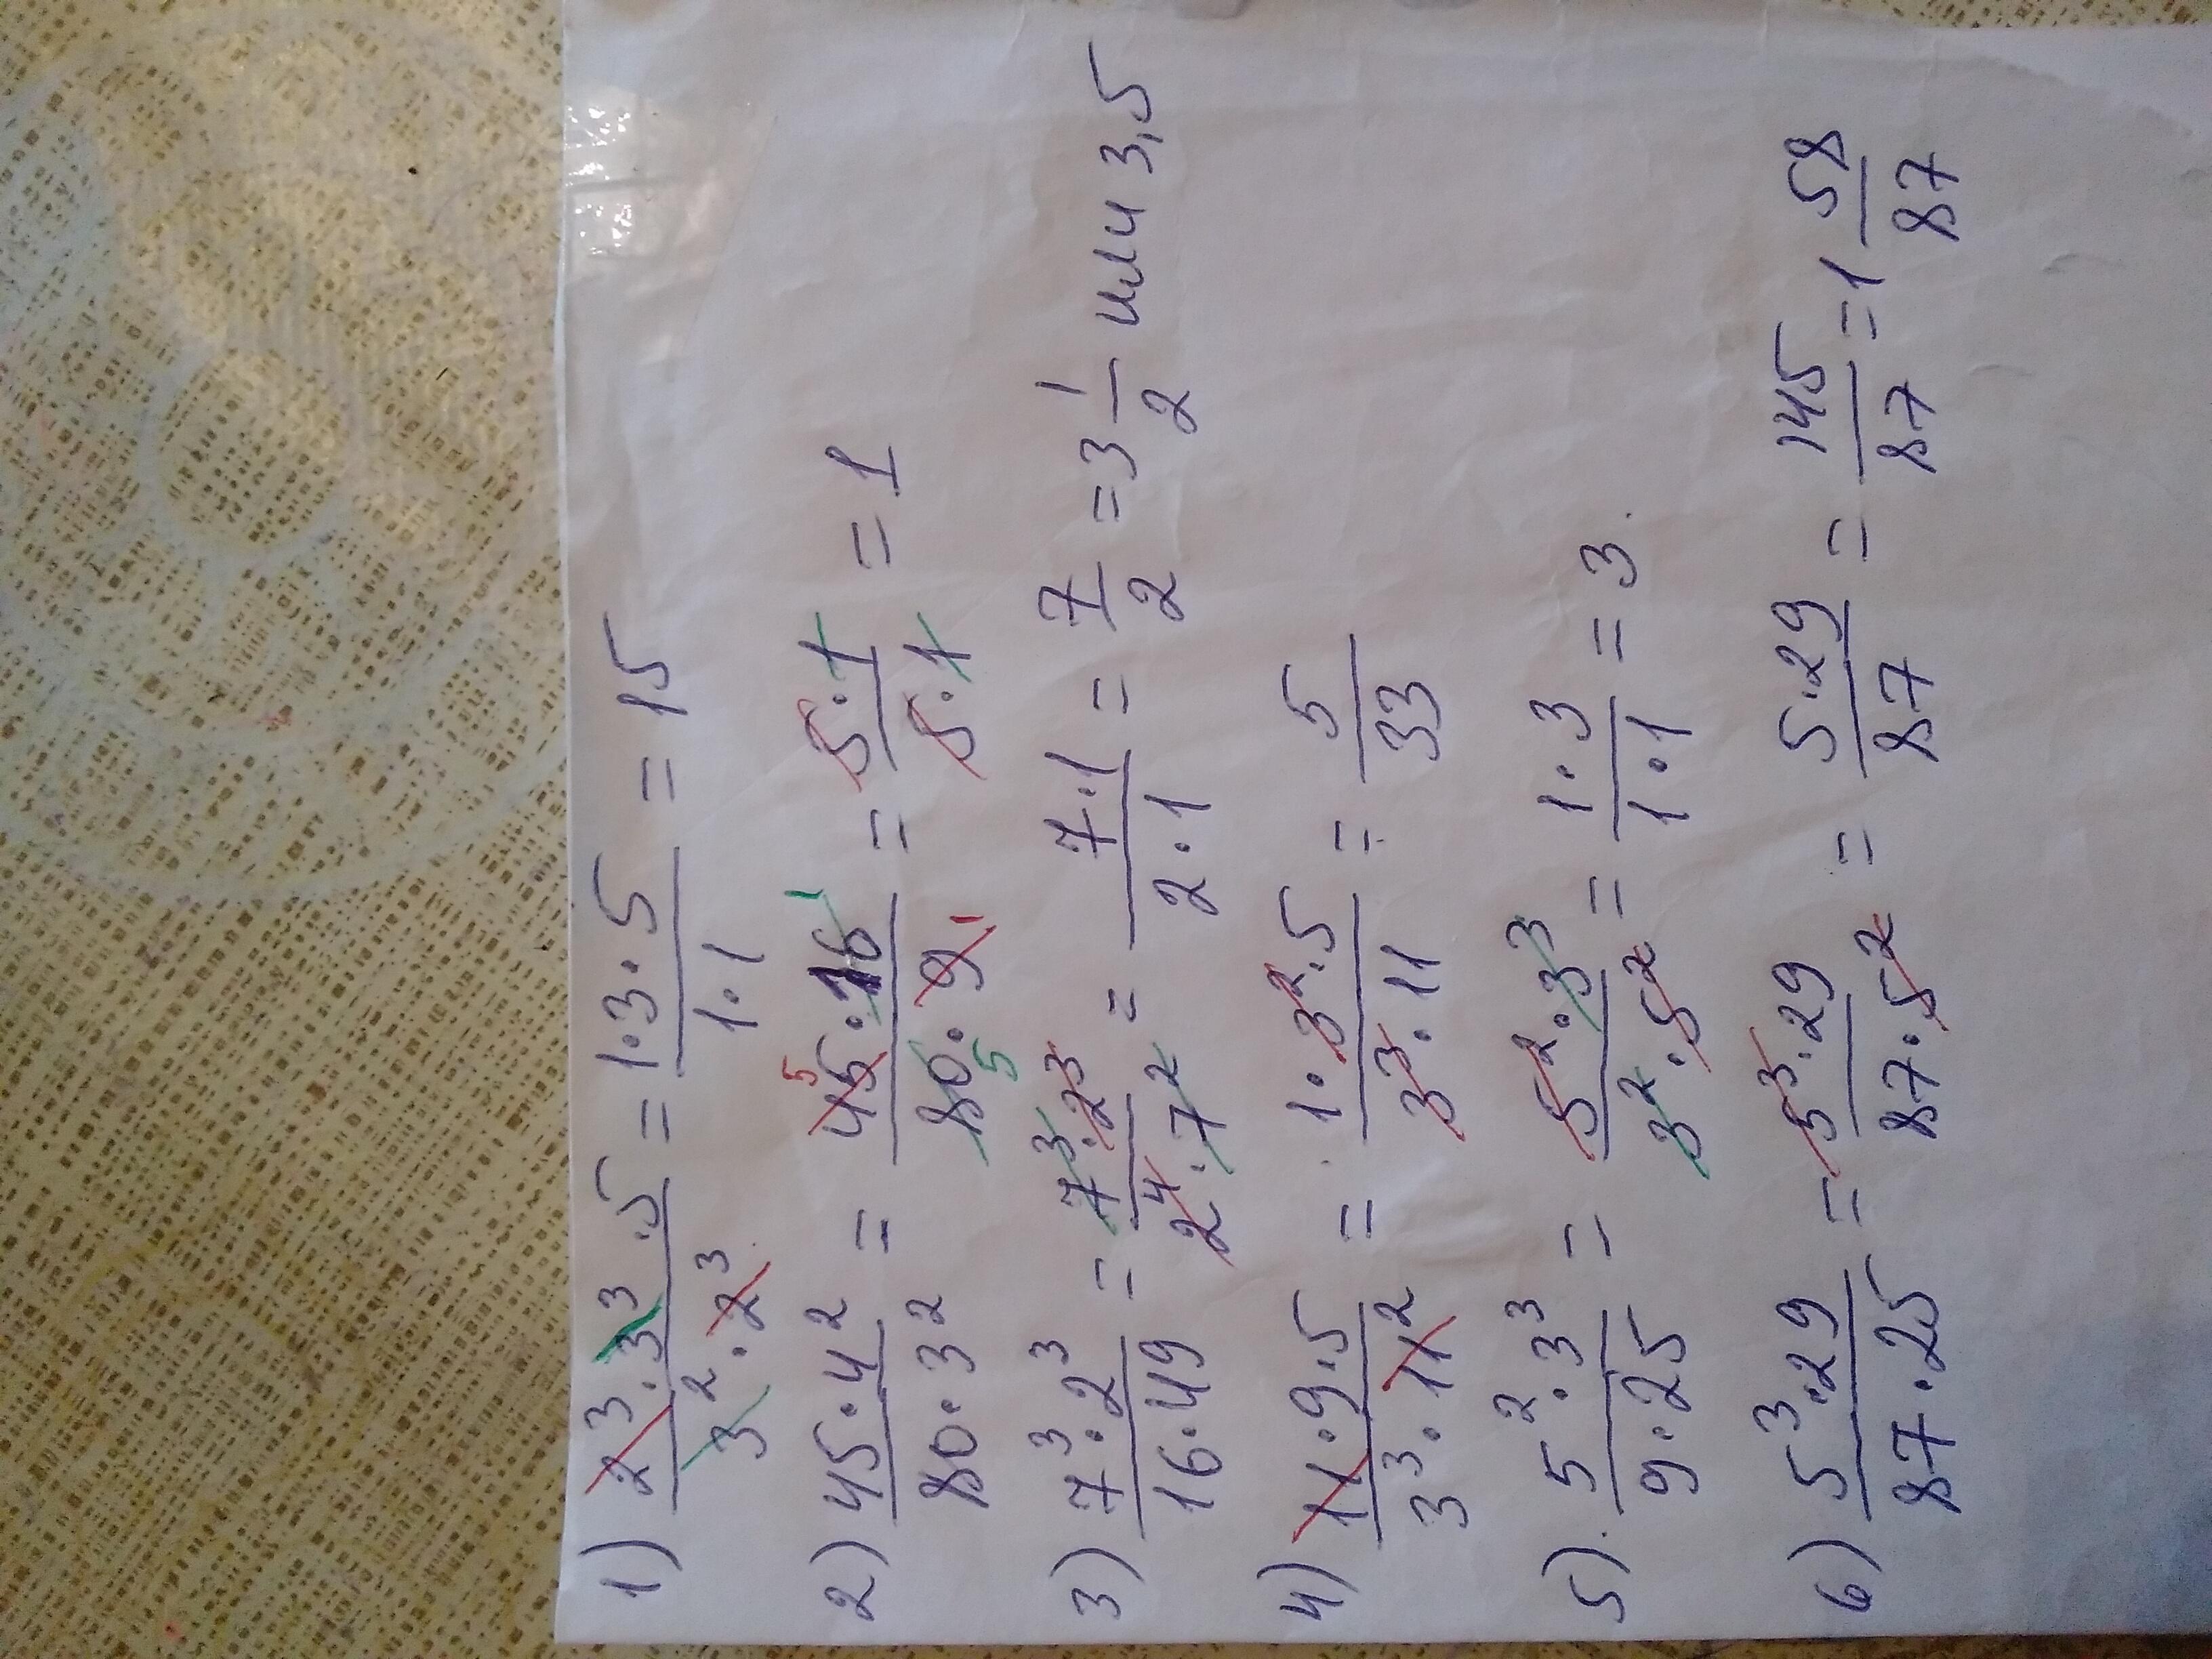 1) 2³·3³·5/3²·2³ = 1·3·5/1·1 = 15
2) 45·4²/80·3² = 45·16/80·9 = 5·1/5·1 = 1
3) 7³·2³/16·49 = 7³·2³/2⁴·7² = 7·1/2·1 = 7/2 = 3 1/2 или 3,5
4) 11·9·5/3³·11² = 1·3²·5/3³·11 = 5/33
5) 5²·3³/9·25 = 5²·3³/3²·5² = 1·3/1·1 = 3.
6) 5³·29/87·25 = 5³·29/87·5² = 5·29/87 = 145/87 = 1 58/87